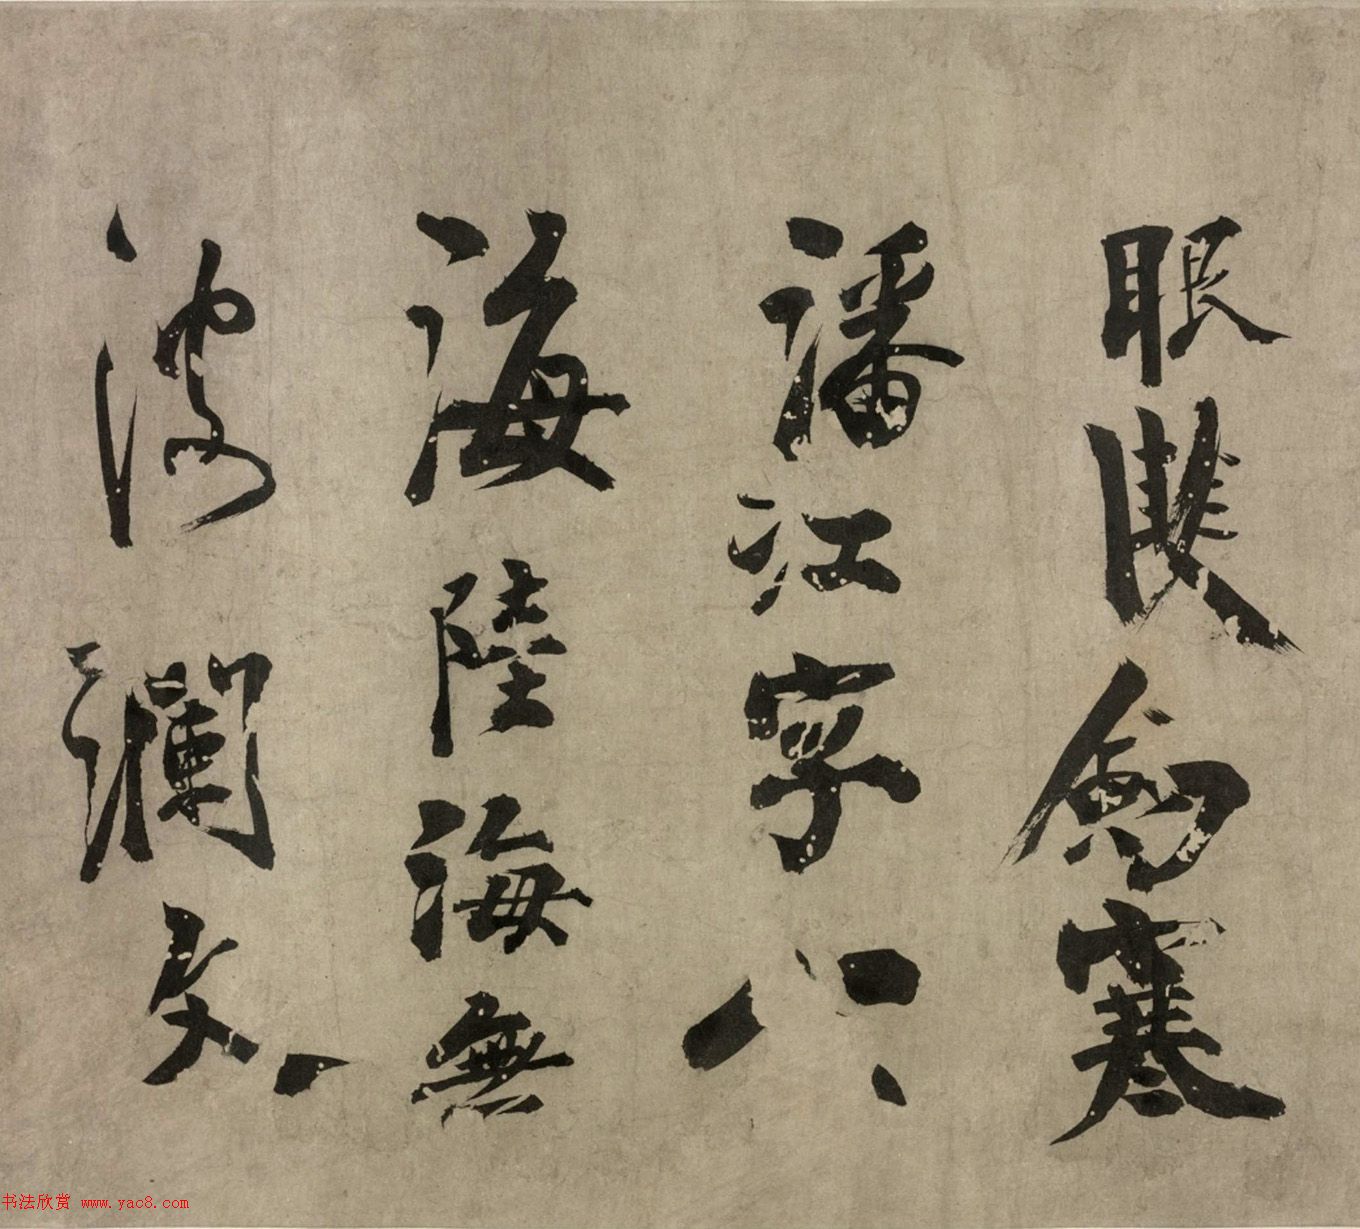 眼雙劍寒
潘江字字
海陸海無
波瀾文
书法欣赏 www.yac8.com